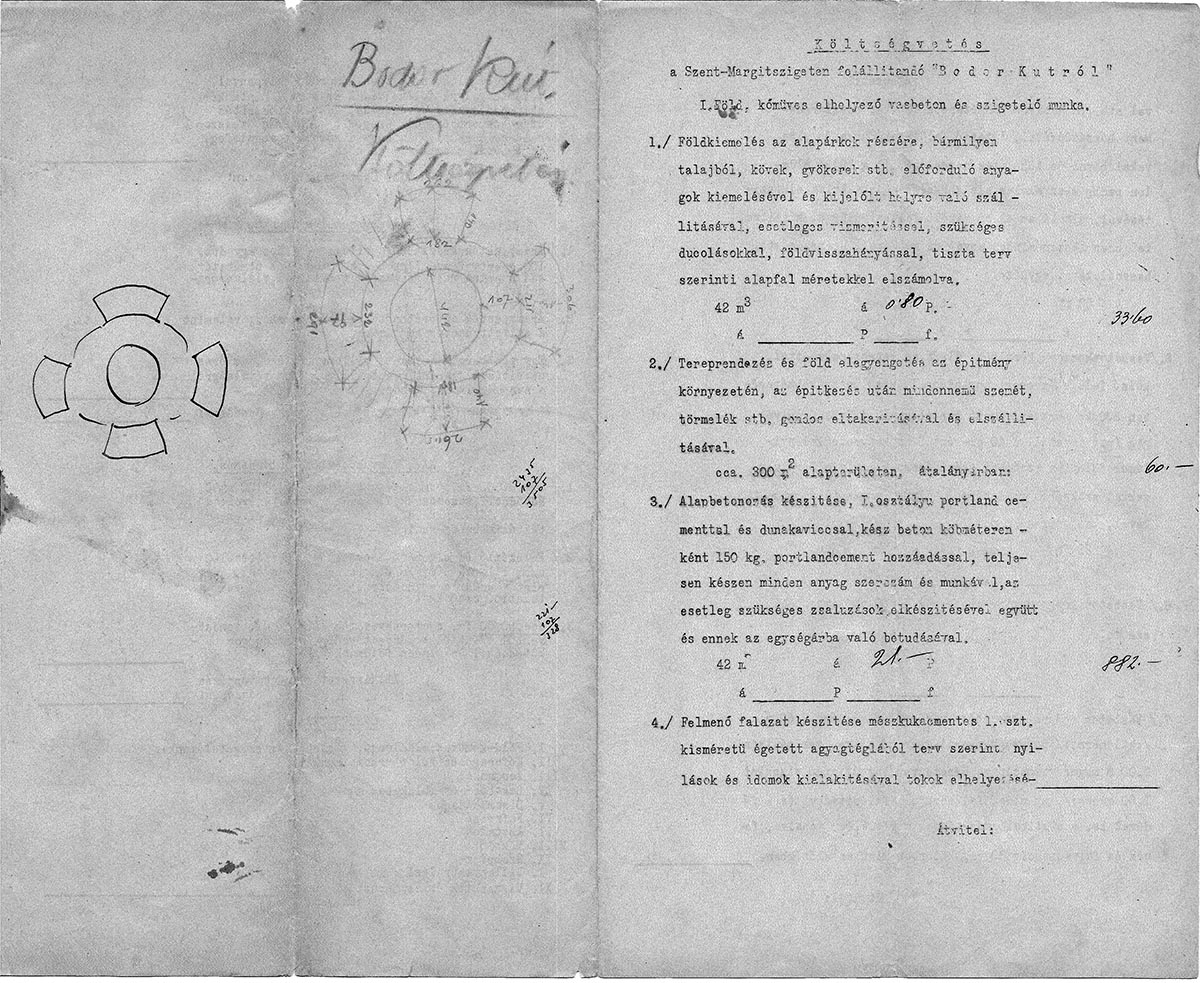 Bodor Kút.
Költségvetés
182
107
142
232
291
306
2435
107
3505
221
107
328
Költségvetés
a Szent-Margitszigeten fölállitandó "Bodor-Kutról"
I.Föld, kőmüves elhelyező vasbeton és szigetelő munka.
1./ Földkiemelés az alapárkok részére, bármilyen
talajból, kövek, gyökerek stb. előforduló anya-
gok kiemelésével és kijelölt helyre való szál -
litásával, esetleges vizmeritéssel, szükséges
ducolásokkal, földvisszahányással, tiszta terv
szerinti alapfal méretekkel elszámolva.
42 m3 á 0'80 P. 33·60
á P f.
2./ Tereprendezés és föld elegyengetés az épitmény
környezetén, az épitkezés után mindennemü szemét,
törmelék stb. gondos eltakaritásával és elszálli-
tásával.
cca. 300 m2 alapterületen, átalányárban: 60.—
3./ Alapbetonozás készitése, I.osztályu portland ce-
menttal és dunakaviccsal,kész beton köbméteren -
ként 150 kg. portlandcement hozzáadással, telje-
sen készen minden anyag szerszám és munkával,az
esetleg szükséges zsaluzások elkészitésével együtt
és ennek az egységárba való betudásával.
42 m á 21.— P 882.—
á P f
4./ Felmenő falazat készitése mészkukacmentes I.oszt.
kisméretü égetett agyagtéglából terv szerint nyi-
lások és idomok kialakitásával tokok elhelyezésé-
Átvitel: